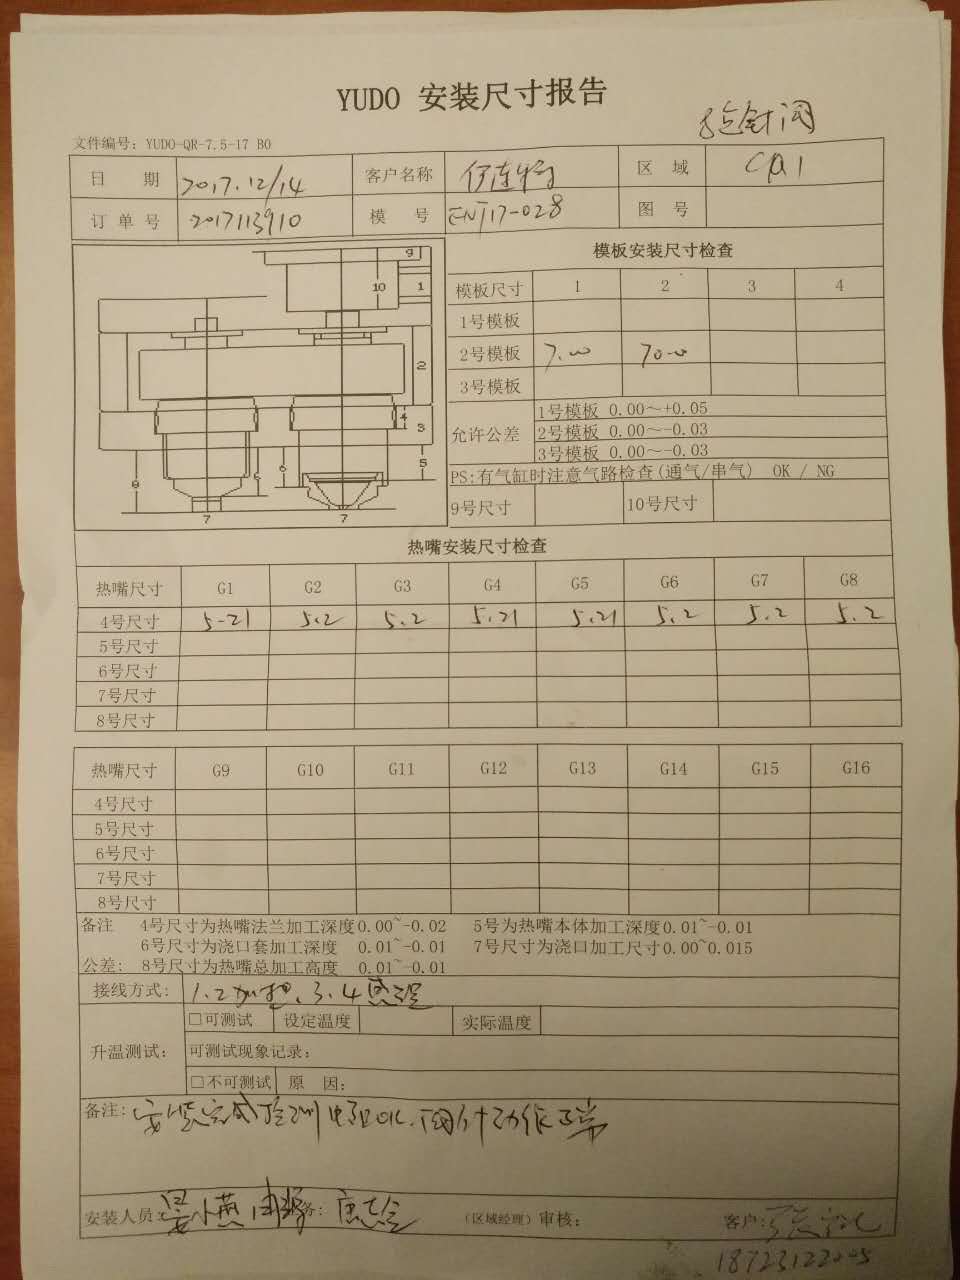 YUDO 安装尺寸报告
针阀
文件编号: YUDO-QR-7.5-17 B0
日 期 2017.12/14 客户名称 区 域
订单号 2017113910 模 号 ENJ17-028 图 号
模板安装尺寸检查
模板尺寸 1 2 3 4
1号模板
2号模板 7.00 70.0
3号模板
允许公差 1号模板 0.00~+0.05
2号模板 0.00~-0.03
3号模板 0.00~-0.03
PS:有气缸时注意气路检查(通气/串气) OK / NG
9号尺寸 10号尺寸
9
10 1
2
4 3
8 6 6 5
7 7
热嘴安装尺寸检查
热嘴尺寸 G1 G2 G3 G4 G5 G6 G7 G8
4号尺寸 5.21 5.2 5.2 5.21 5.21 5.2 5.2 5.2
5号尺寸
6号尺寸
7号尺寸
8号尺寸
热嘴尺寸 G9 G10 G11 G12 G13 G14 G15 G16
4号尺寸
5号尺寸
6号尺寸
7号尺寸
8号尺寸
备注 4号尺寸为热嘴法兰加工深度0.00~-0.02 5号为热嘴本体加工深度0.01~-0.01
6号尺寸为浇口套加工深度 0.01~-0.01 7号尺寸为浇口加工尺寸0.00~0.015
公差: 8号尺寸为热嘴总加工高度 0.01~-0.01
接线方式: 1.2加热、3.4感温
升温测试: □可测试 设定温度 实际温度
可测试现象记录:
□不可测试 原 因:
备注: 安装完成检测电阻OK.阀针动作正常
安装人员: 务: (区域经理)审核: 客户: